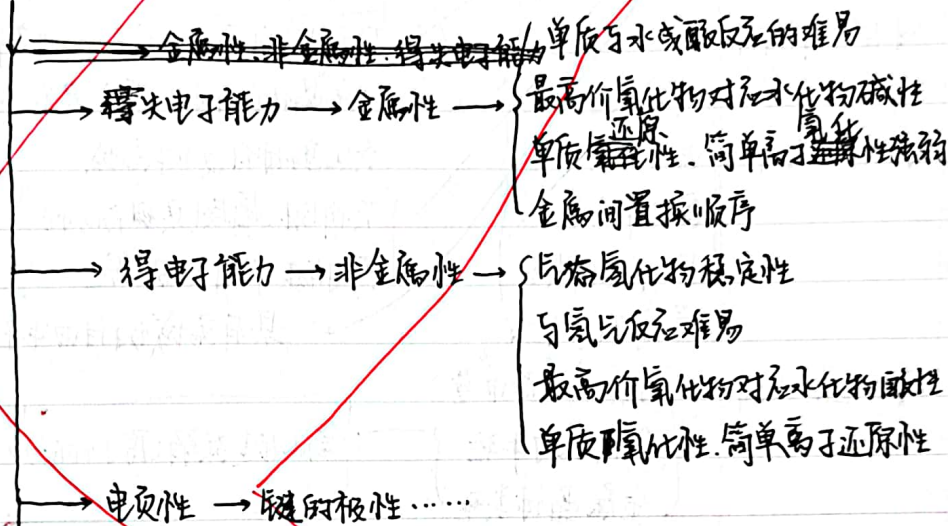 → 金属性、非金属性、得失电子能力
单质与水或酸反应的难易
→ 失电子能力 → 金属性 →
最高价氧化物对应水化物碱性
单质还原性、简单离子氧化性强弱
金属间置换顺序
→ 得电子能力 → 非金属性 →
气态氢化物稳定性
与氢气反应难易
最高价氧化物对应水化物酸性
单质氧化性、简单离子还原性
→ 电负性 → 键的极性……